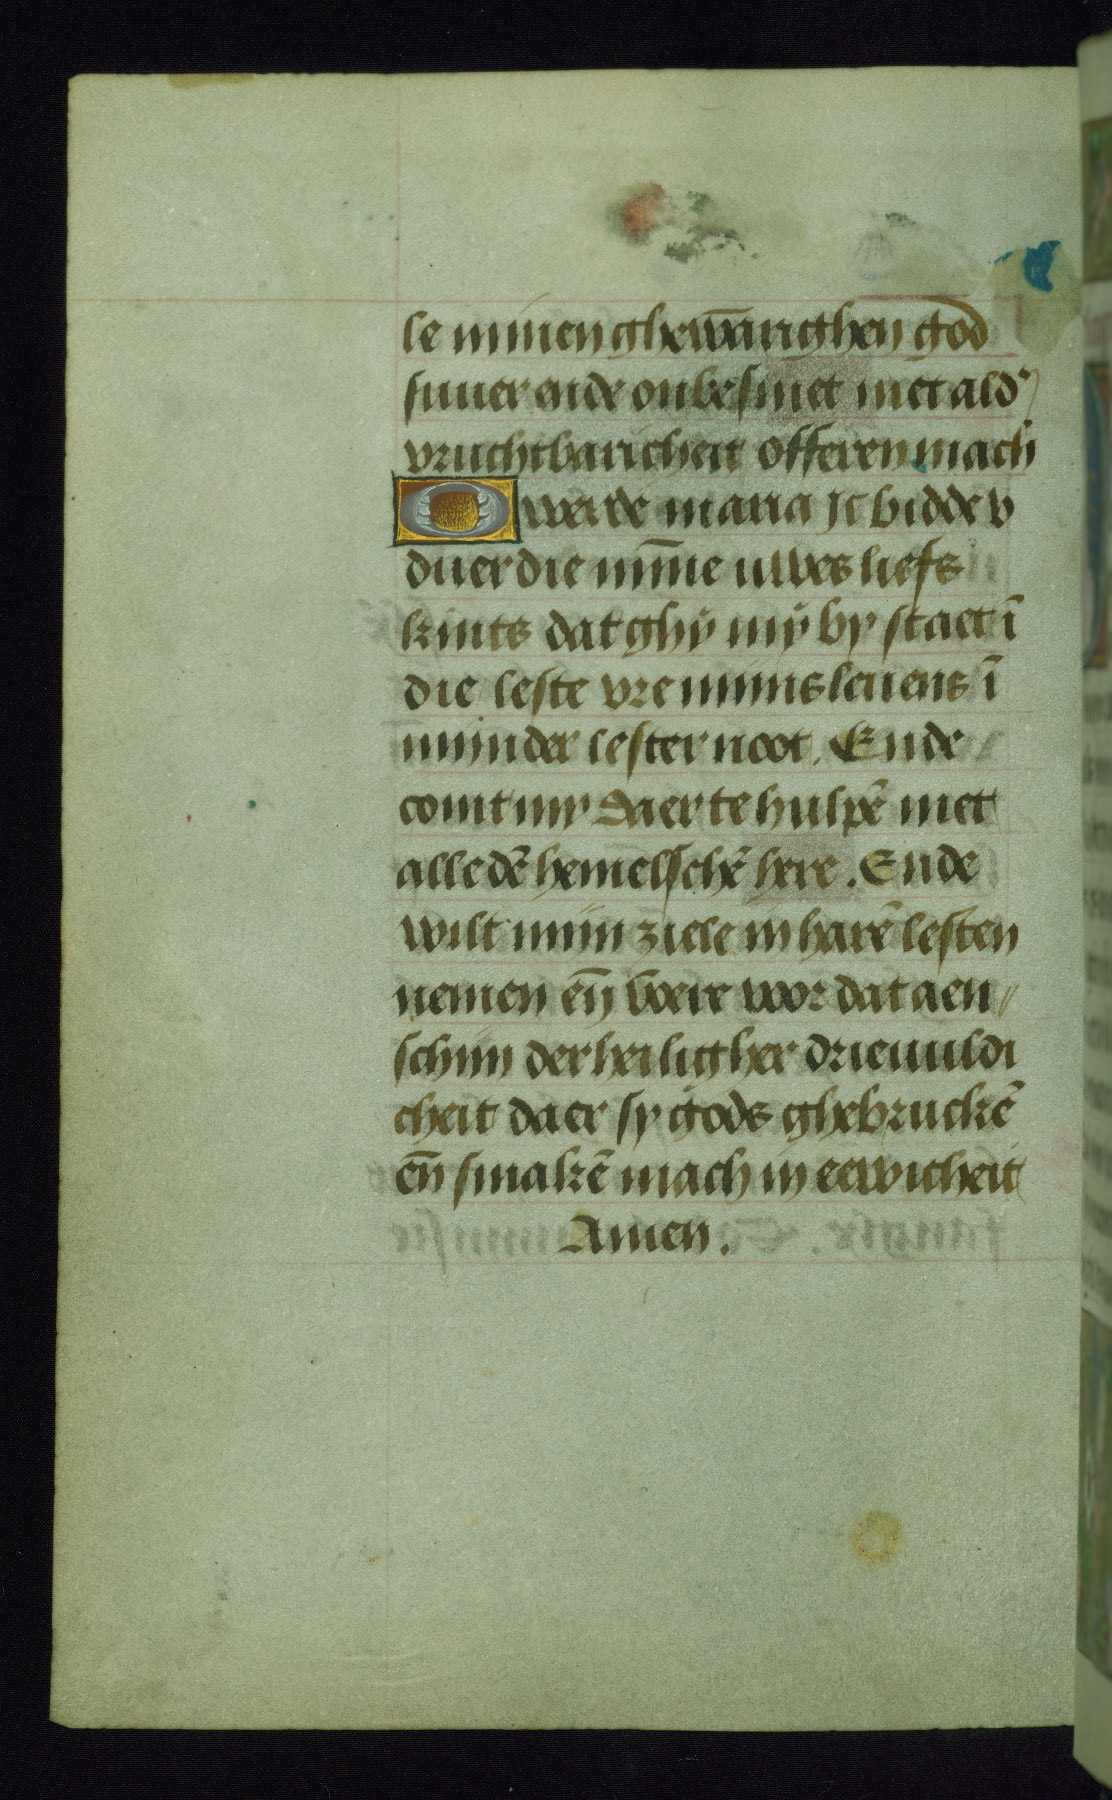 le minen ghewārighen god
suuer ende onbesmet met ald'
vruchtbaricheit offeren mach
O werde maria Ic bidde v
duer die mīne uwes liefs
kints dat ghÿ mÿ by staet ī
die leste vre mÿns leuens ī
mÿnder lester noot. Ende
comt my daer te hulpē met
alle dē hemelschē here. Ende
wilt mÿn ziele in harē lesten
nemen eñ voere voor dat aen⸗
schÿn der heiligher drieuuldi
cheit daer sy gods ghebruckē
eñ smakē mach in eewicheit
Amen.